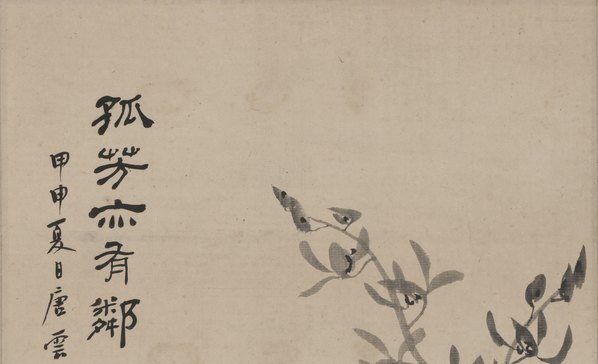 孤芳亦有鄰
甲申夏日唐雲